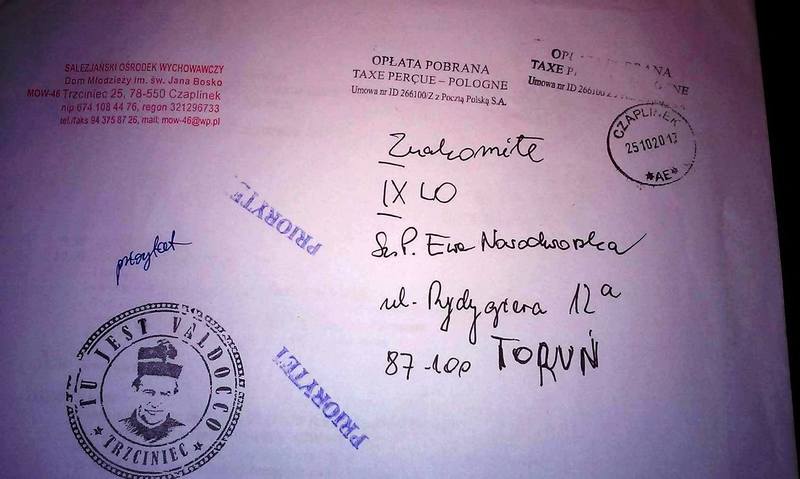 SALEZJAŃSKI OŚRODEK WYCHOWAWCZY
Dom Młodzieży im. św. Jana Bosko
MOW-46 Trzciniec 25, 78-550 Czaplinek
nip 674 108 44 76, regon 321296733
tel./faks 94 375 87 26, mail: mow-46@wp.pl
OPŁATA POBRANA
TAXE PERÇUE – POLOGNE
Umowa nr ID 266100/Z z Pocztą Polską S.A.
OPŁ POBRANA
TAXE P OGNE
Umowa nr ID 266100
CZAPLINEK
25102013
*AE*
Znakomite
IX LO
Sz.P. Ewa
ul. Rydygiera 12a
87-100 TORUŃ
PRIORYTE
PRIORYTET
TU JEST VALDOCCO
* TRZCINIEC *